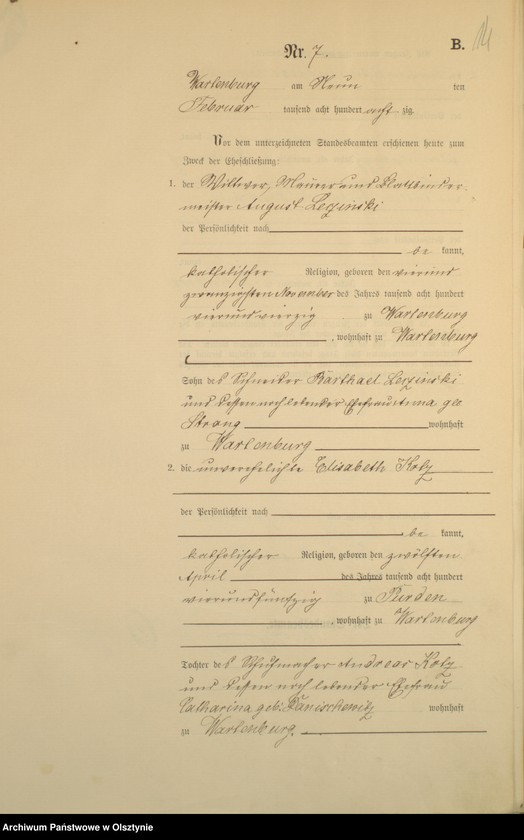 B. 14
Nr. 7.
Wartenburg am Neun ten
Februar tausend acht hundert acht zig.
Vor dem unterzeichneten Standesbeamten erschienen heute zum
Zweck der Eheschließung:
1. der Wittwer, Maurer und Blattbinder-
meister August Lezinski
der Persönlichkeit nach
be kannt,
katholischer Religion, geboren den vierund
zwanzigsten November des Jahres tausend acht hundert
vierundvierzig zu Wartenburg
, wohnhaft zu Wartenburg
Sohn des Schneider Barthael Lezinski
und dessen noch lebender Ehefrau Anna geb
Strang wohnhaft
zu Wartenburg
2. die unverehelichte Elisabeth Kotz
der Persönlichkeit nach
be kannt,
katholischer Religion, geboren den zwölften
April des Jahres tausend acht hundert
vierundfünfzig zu Purden
, wohnhaft zu Wartenburg
Tochter des Schuhmacher Andreas Kotz
und dessen noch lebender Ehefrau
Catharina geb. wohnhaft
zu Wartenburg.
Archiwum Państwowe w Olsztynie